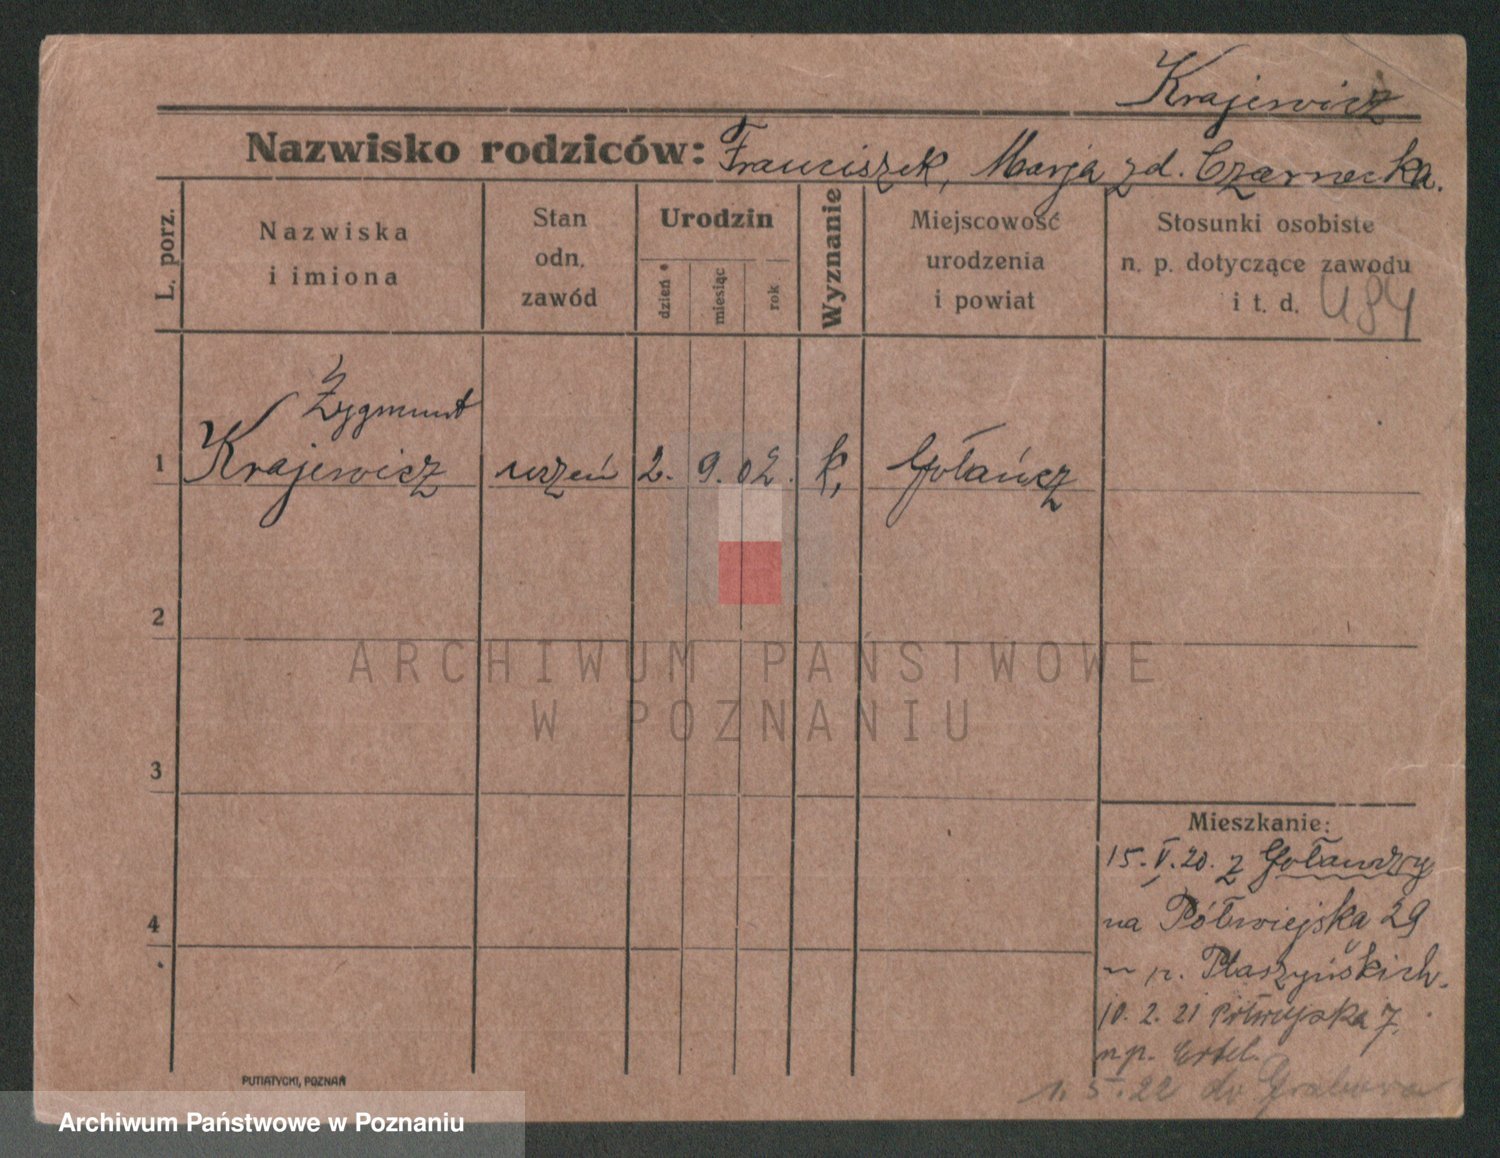 Krajewicz
Nazwisko rodziców: Franciszek, Marja zd. Czarnecka.
L. porz.
Nazwiska
i imiona
Stan
odn.
zawód
Urodzin
dzień *
miesiąc
rok
Wyznanie
Miejscowość
urodzenia
i powiat
Stosunki osobiste
n. p. dotyczące zawodu
i t. d. 484
Zygmunt
1 Krajewicz uczeń 2. 9. 02. k. Gołańcz
2
ARCHIWUM PAŃSTWOWE
W POZNANIU
3
Mieszkanie:
15. V. 20. z Gołańczy
4
na Półwiejska 29
u p. Płaszyńskich.
10. 2. 21 Półwiejska 7.
u p. Ertel.
PUTIATYCKI, POZNAŃ
1. 5. 22 do Grabowa
Archiwum Państwowe w Poznaniu